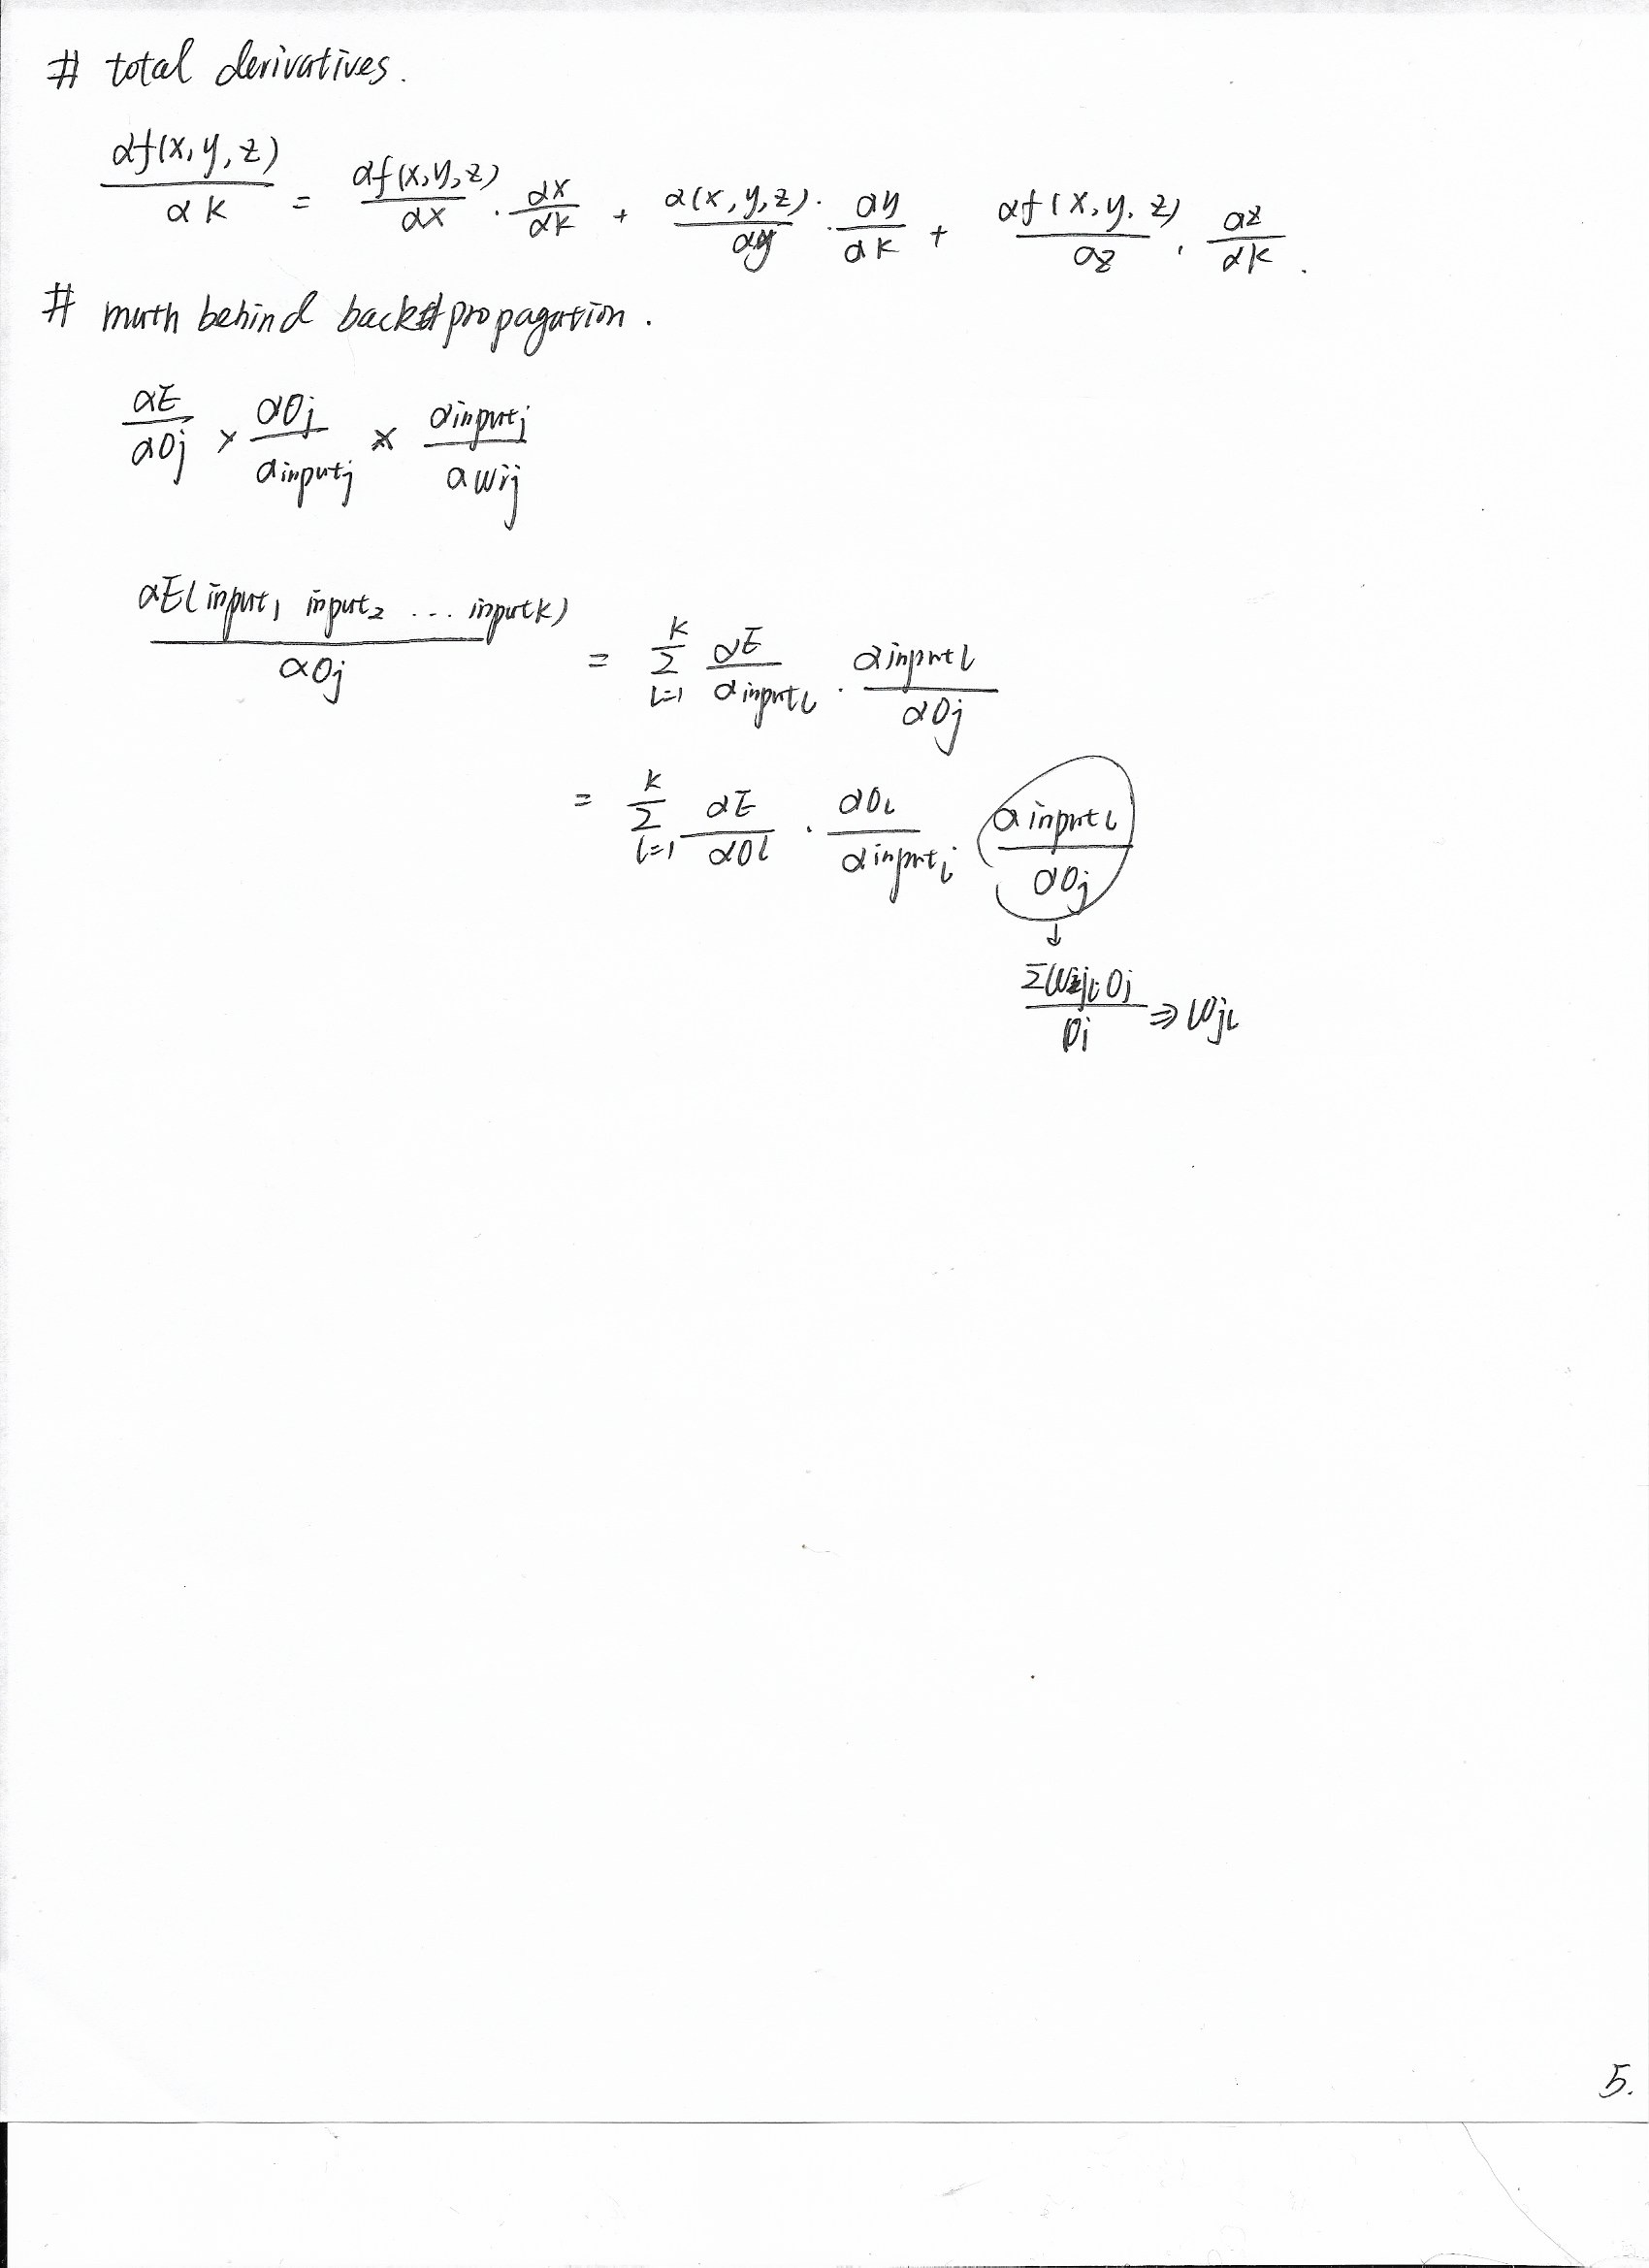 # total derivatives.
αf(x,y,z) / αk = αf(x,y,z) / αx · αx / αk + α(x,y,z) · / αy · αy / αk + αf(x,y,z) / αz · αz / αk .
# math behind backpropagation.
αE / αOj × αOj / αinputj × αinputj / αwij
αE(input1 input2 ... inputk) / αOj = K Σ l=1 αE / αinputl · αinputl / αOj
= K Σ l=1 αE / αOl · αOl / αinputl αinputl / αOj
↓
ΣWjl·Oj / Oj ⇒ Wjl
5.